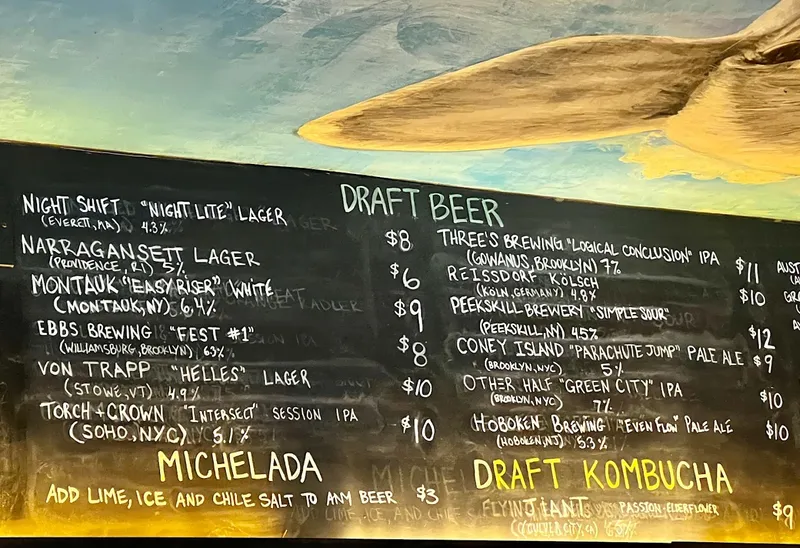 DRAFT BEER
NIGHT SHIFT "NIGHT LITE" LAGER $8
(EVERETT, MA) 4.3%
NARRAGANSETT LAGER $6
(PROVIDENCE, RI) 5%
MONTAUK "EASY RISER" WHITE $9
(MONTAUK, NY) 6.4%
EBBS BREWING "FEST #1" $8
(WILLIAMSBURG, BROOKLYN) 6.3%
VON TRAPP "HELLES" LAGER $10
(STOWE, VT) 4.9%
TORCH + CROWN "INTERSECT" SESSION IPA $10
(SOHO, NYC) 5.1%
THREE'S BREWING "LOGICAL CONCLUSION" IPA $11
(GOWANUS, BROOKLYN) 7%
REISSDORF KÖLSCH $10
(KÖLN, GERMANY) 4.8%
PEEKSKILL BREWERY "SIMPLE SOUR" $12
(PEEKSKILL, NY) 4.5%
CONEY ISLAND "PARACHUTE JUMP" PALE ALE $9
(BROOKLYN, NYC) 5%
OTHER HALF "GREEN CITY" IPA $10
(BROOKLYN, NYC) 7%
HOBOKEN BREWING "EVEN FLOW" PALE ALE $10
(HOBOKEN, NJ) 5.3%
MICHELADA
ADD LIME, ICE AND CHILE SALT TO ANY BEER $3
DRAFT KOMBUCHA
PASSION-ELDERFLOWER $9